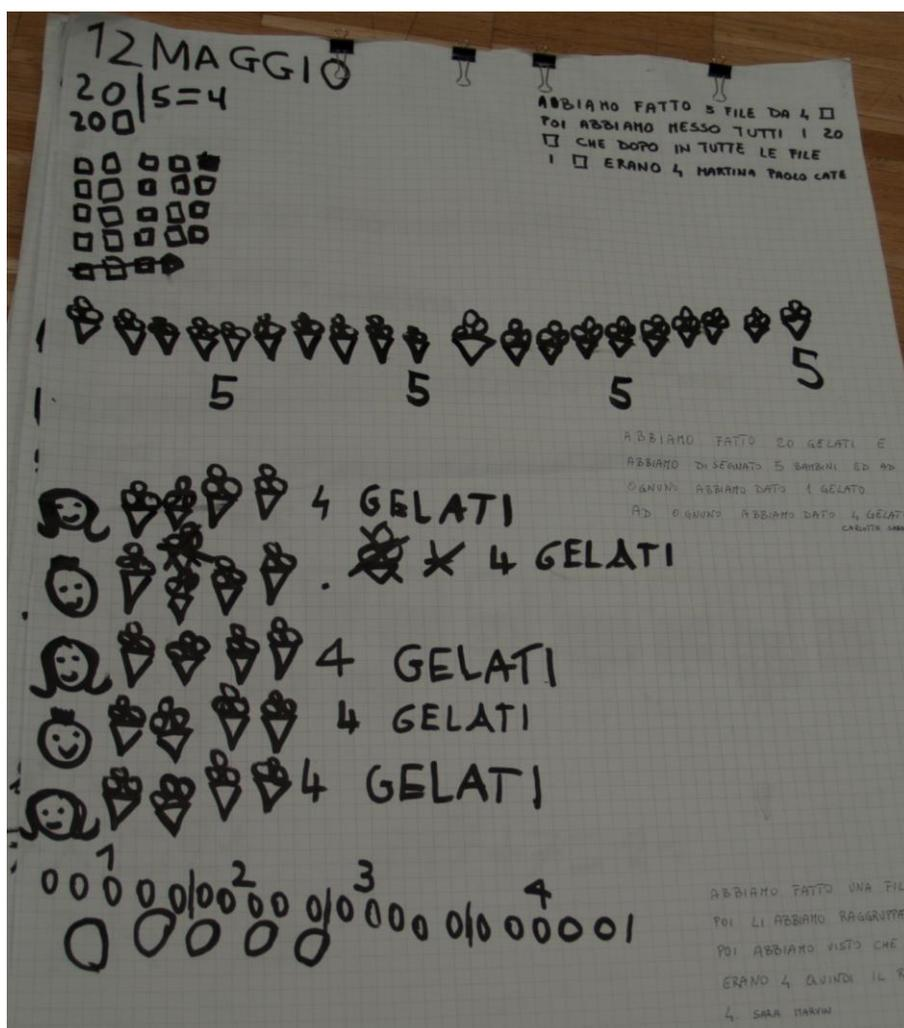 12 MAGGIO
20|5=4
20 □
ABBIAMO FATTO 5 FILE DA 4 □
POI ABBIAMO MESSO TUTTI I 20
□ CHE DOPO IN TUTTE LE FILE
I □ ERANO 4 MARTINA PAOLO CATE
5 5 5 5
ABBIAMO FATTO 20 GELATI E
ABBIAMO DISEGNATO 5 BAMBINI ED AD
OGNUNO ABBIAMO DATO 1 GELATO
AD OGNUNO ABBIAMO DATO 4 GELATI
CARLOTTA
4 GELATI
4 GELATI
4 GELATI
4 GELATI
4 GELATI
1 2 3 4
ABBIAMO FATTO UNA FIL
POI LI ABBIAMO RAGGRUPPA
POI ABBIAMO VISTO CHE
ERANO 4 QUINDI IL R
4 SARA MARVIN